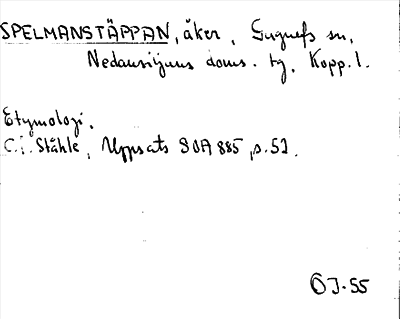 SPELMANSTÄPPAN, åker, Gagnefs sn,
Nedansiljans doms. tg, Kopp. l.
Etymologi.
C.I. Ståhle, Uppsats SOÄ 885, s. 52.
ÖJ-55